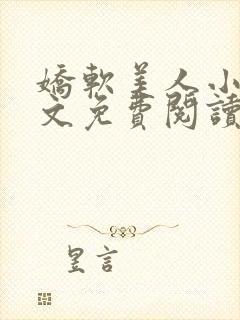 嬌軟美人小
文免費閱讀
昱言